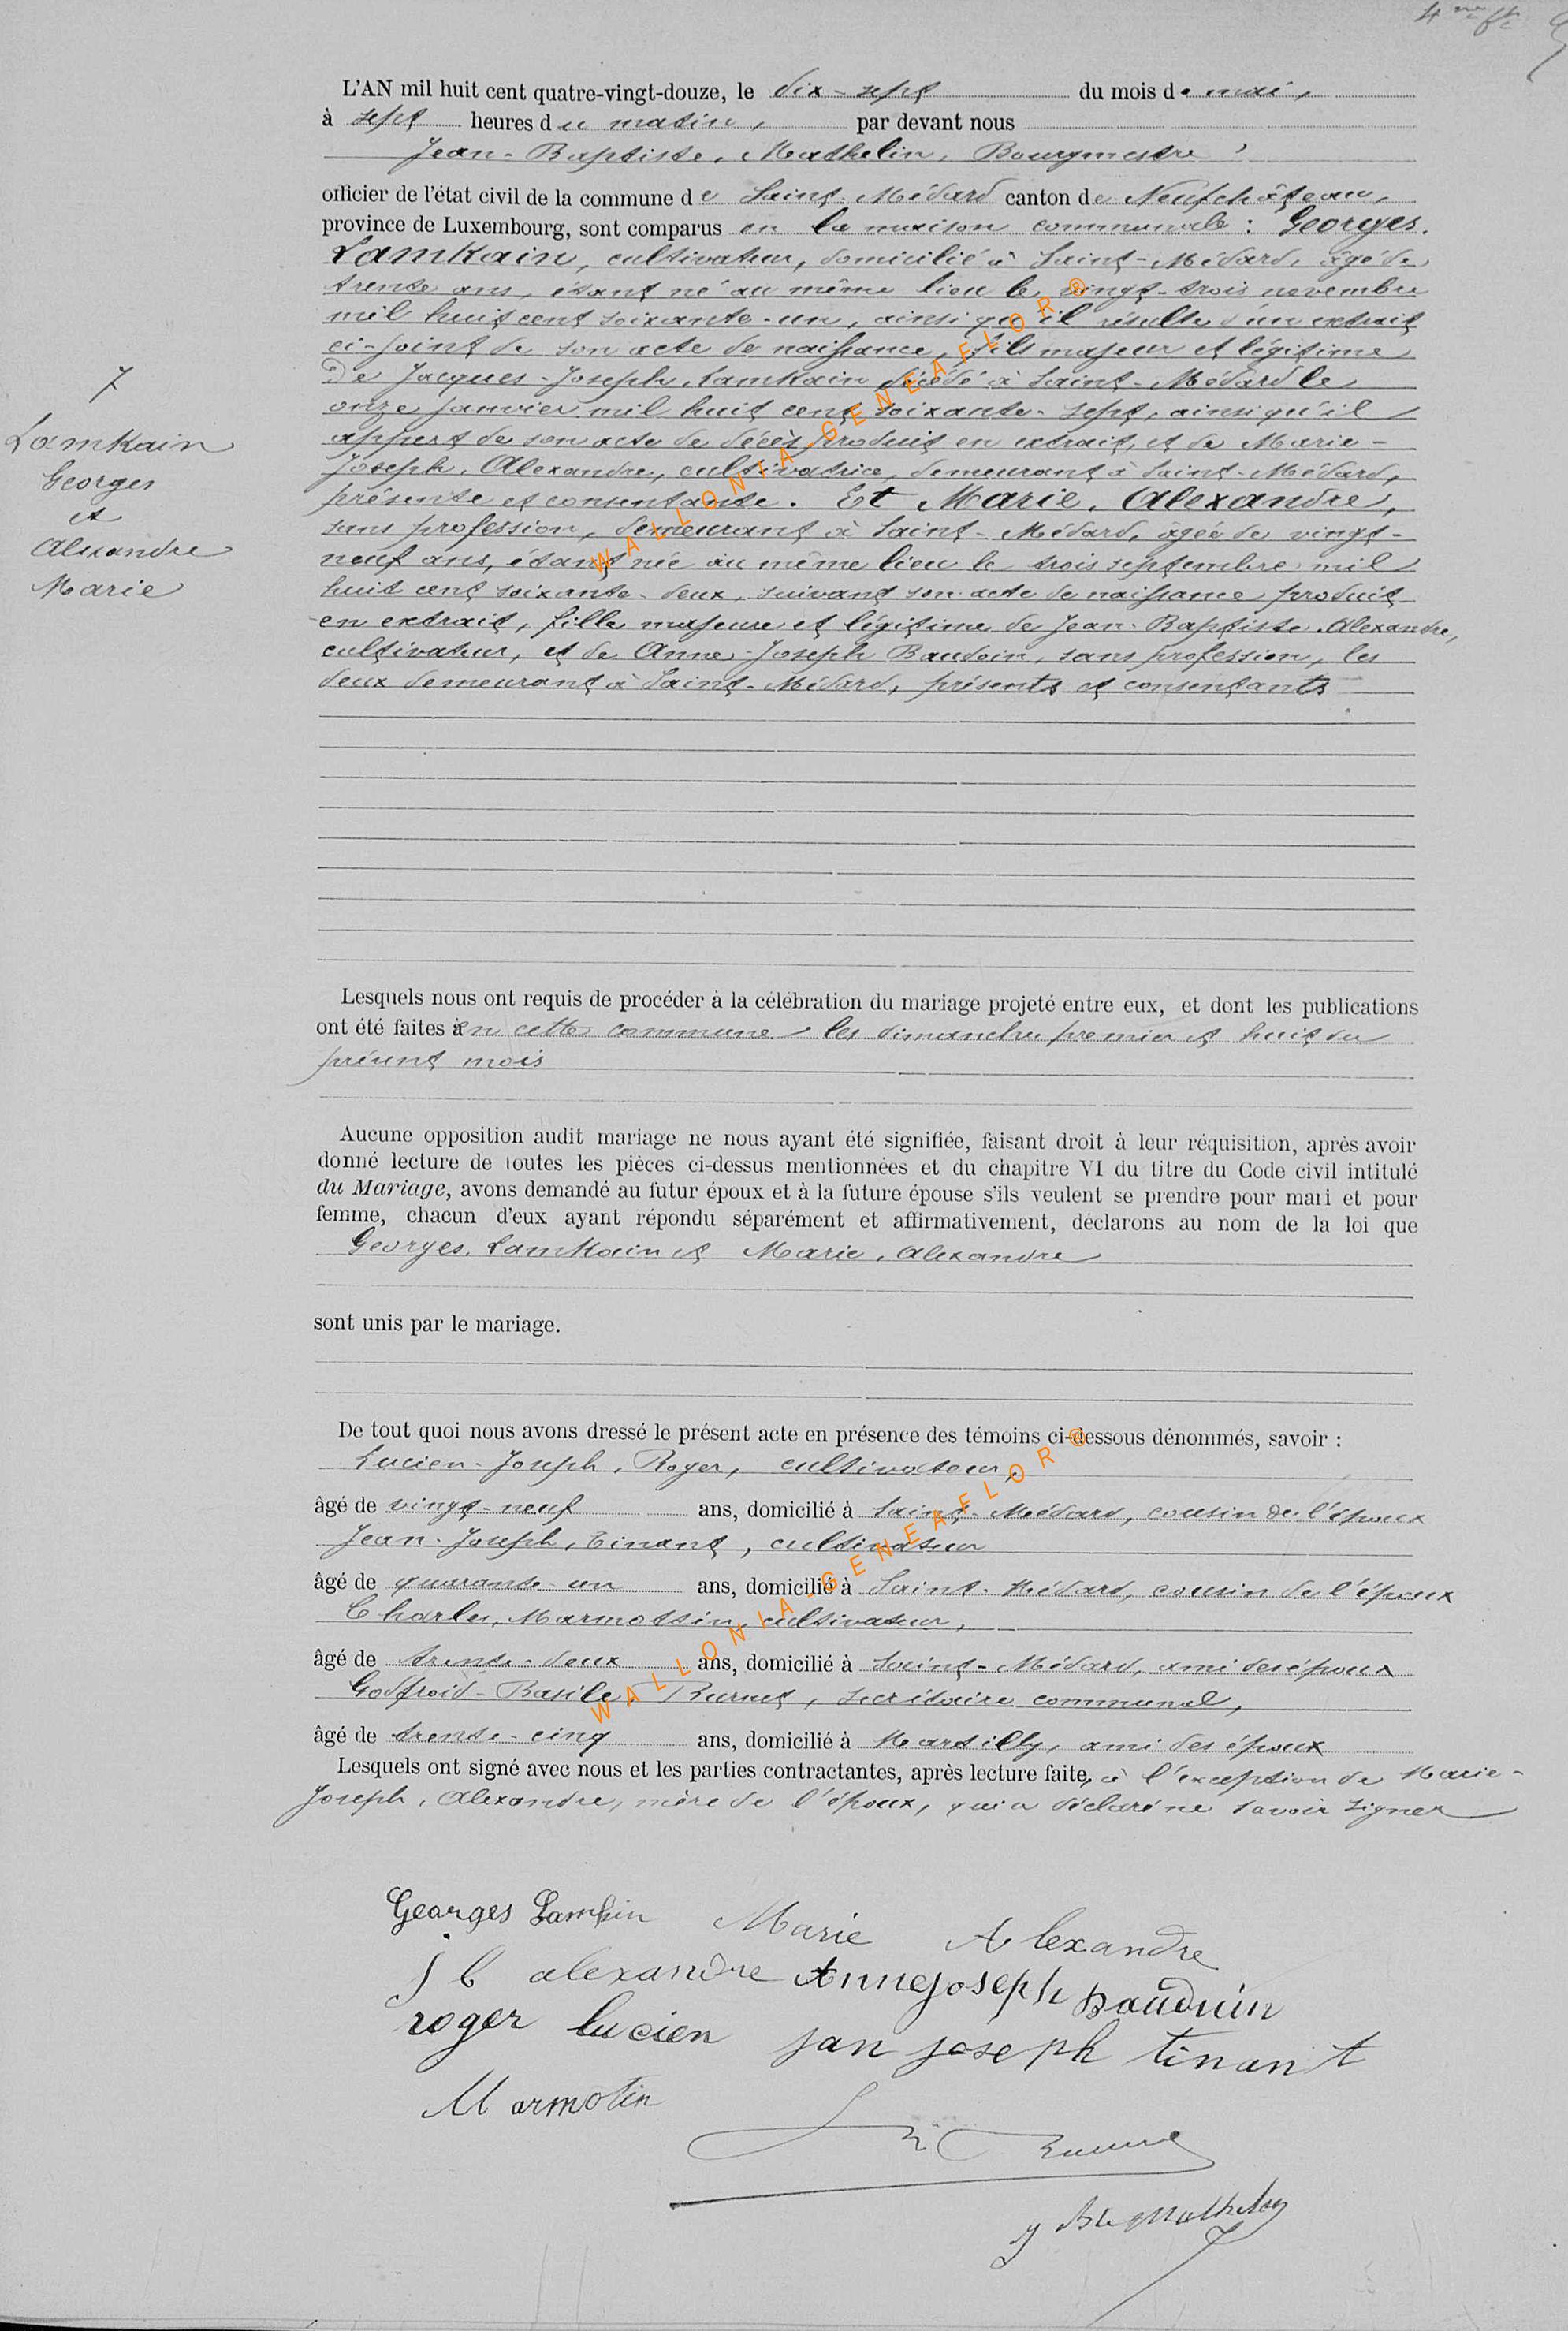 4me ft
L'AN mil huit cent quatre-vingt-douze, le dix-sept du mois de mai,
à sept heures du matin, par devant nous
Jean-Baptiste, Mathelin, Bourgmestre,
officier de l'état civil de la commune de Saint-Médard canton de Neufchâteau,
province de Luxembourg, sont comparus en la maison communale : Georges.
Lamkain, cultivateur, domicilié à Saint-Médard, âgé de
trente ans, étant né au même lieu le vingt-trois novembre
mil huit cent soixante-un, ainsi qu'il résulte d'un extrait
ci-joint de son acte de naissance, fils majeur et légitime
De Jacques-Joseph, Lamkain décédé à Saint-Médard le
onze janvier mil huit cent soixante-sept, ainsi qu'il
appert de son acte de décès produit en extrait, et de Marie-
Joseph, Alexandre, cultivatrice, demeurant à Saint-Médard,
présente et consentante. Et Marie, Alexandre,
sans profession, demeurant à Saint-Médard, âgée de vingt-
neuf ans, étant née au même lieu le trois septembre mil
huit cent soixante-deux, suivant son acte de naissance produit
en extrait, fille majeure et légitime de Jean-Baptiste Alexandre,
cultivateur, et de Anne-Joseph Baudoin, sans profession, les
deux demeurant à Saint-Médard, présents et consentants
7
Lamkain
Georges
et
Alexandre
Marie
WALLONIA-GENEAFLOR®
Lesquels nous ont requis de procéder à la célébration du mariage projeté entre eux, et dont les publications
ont été faites en cette commune les dimanches premier et huit du
présent mois
Aucune opposition audit mariage ne nous ayant été signifiée, faisant droit à leur réquisition, après avoir
donné lecture de toutes les pièces ci-dessus mentionnées et du chapitre VI du titre du Code civil intitulé
du Mariage, avons demandé au futur époux et à la future épouse s'ils veulent se prendre pour mari et pour
femme, chacun d'eux ayant répondu séparément et affirmativement, déclarons au nom de la loi que
Georges, Lamkain et Marie, Alexandre
sont unis par le mariage.
De tout quoi nous avons dressé le présent acte en présence des témoins ci-dessous dénommés, savoir :
Lucien-Joseph, Roger, cultivateur,
âgé de vingt-neuf ans, domicilié à Saint-Médard, cousin de l'époux
Jean-Joseph, Tinant, cultivateur
âgé de quarante-un ans, domicilié à Saint-Médard, cousin de l'époux
Charles, Marmottin, cultivateur,
âgé de trente-deux ans, domicilié à Saint-Médard, ami des époux
Godfroid-Basile, Burnet, secrétaire communal,
âgé de trente-cinq ans, domicilié à Martilly, ami des époux
Lesquels ont signé avec nous et les parties contractantes, après lecture faite, à l'exception de Marie-
Joseph, Alexandre, mère de l'époux, qui a déclaré ne savoir signer
WALLONIA-GENEAFLOR®
Georges Lamkin Marie Alexandre
j b alexandre Anne joseph bauduin
roger lucien jan joseph tinant
Marmotin
J Bte Mathelin